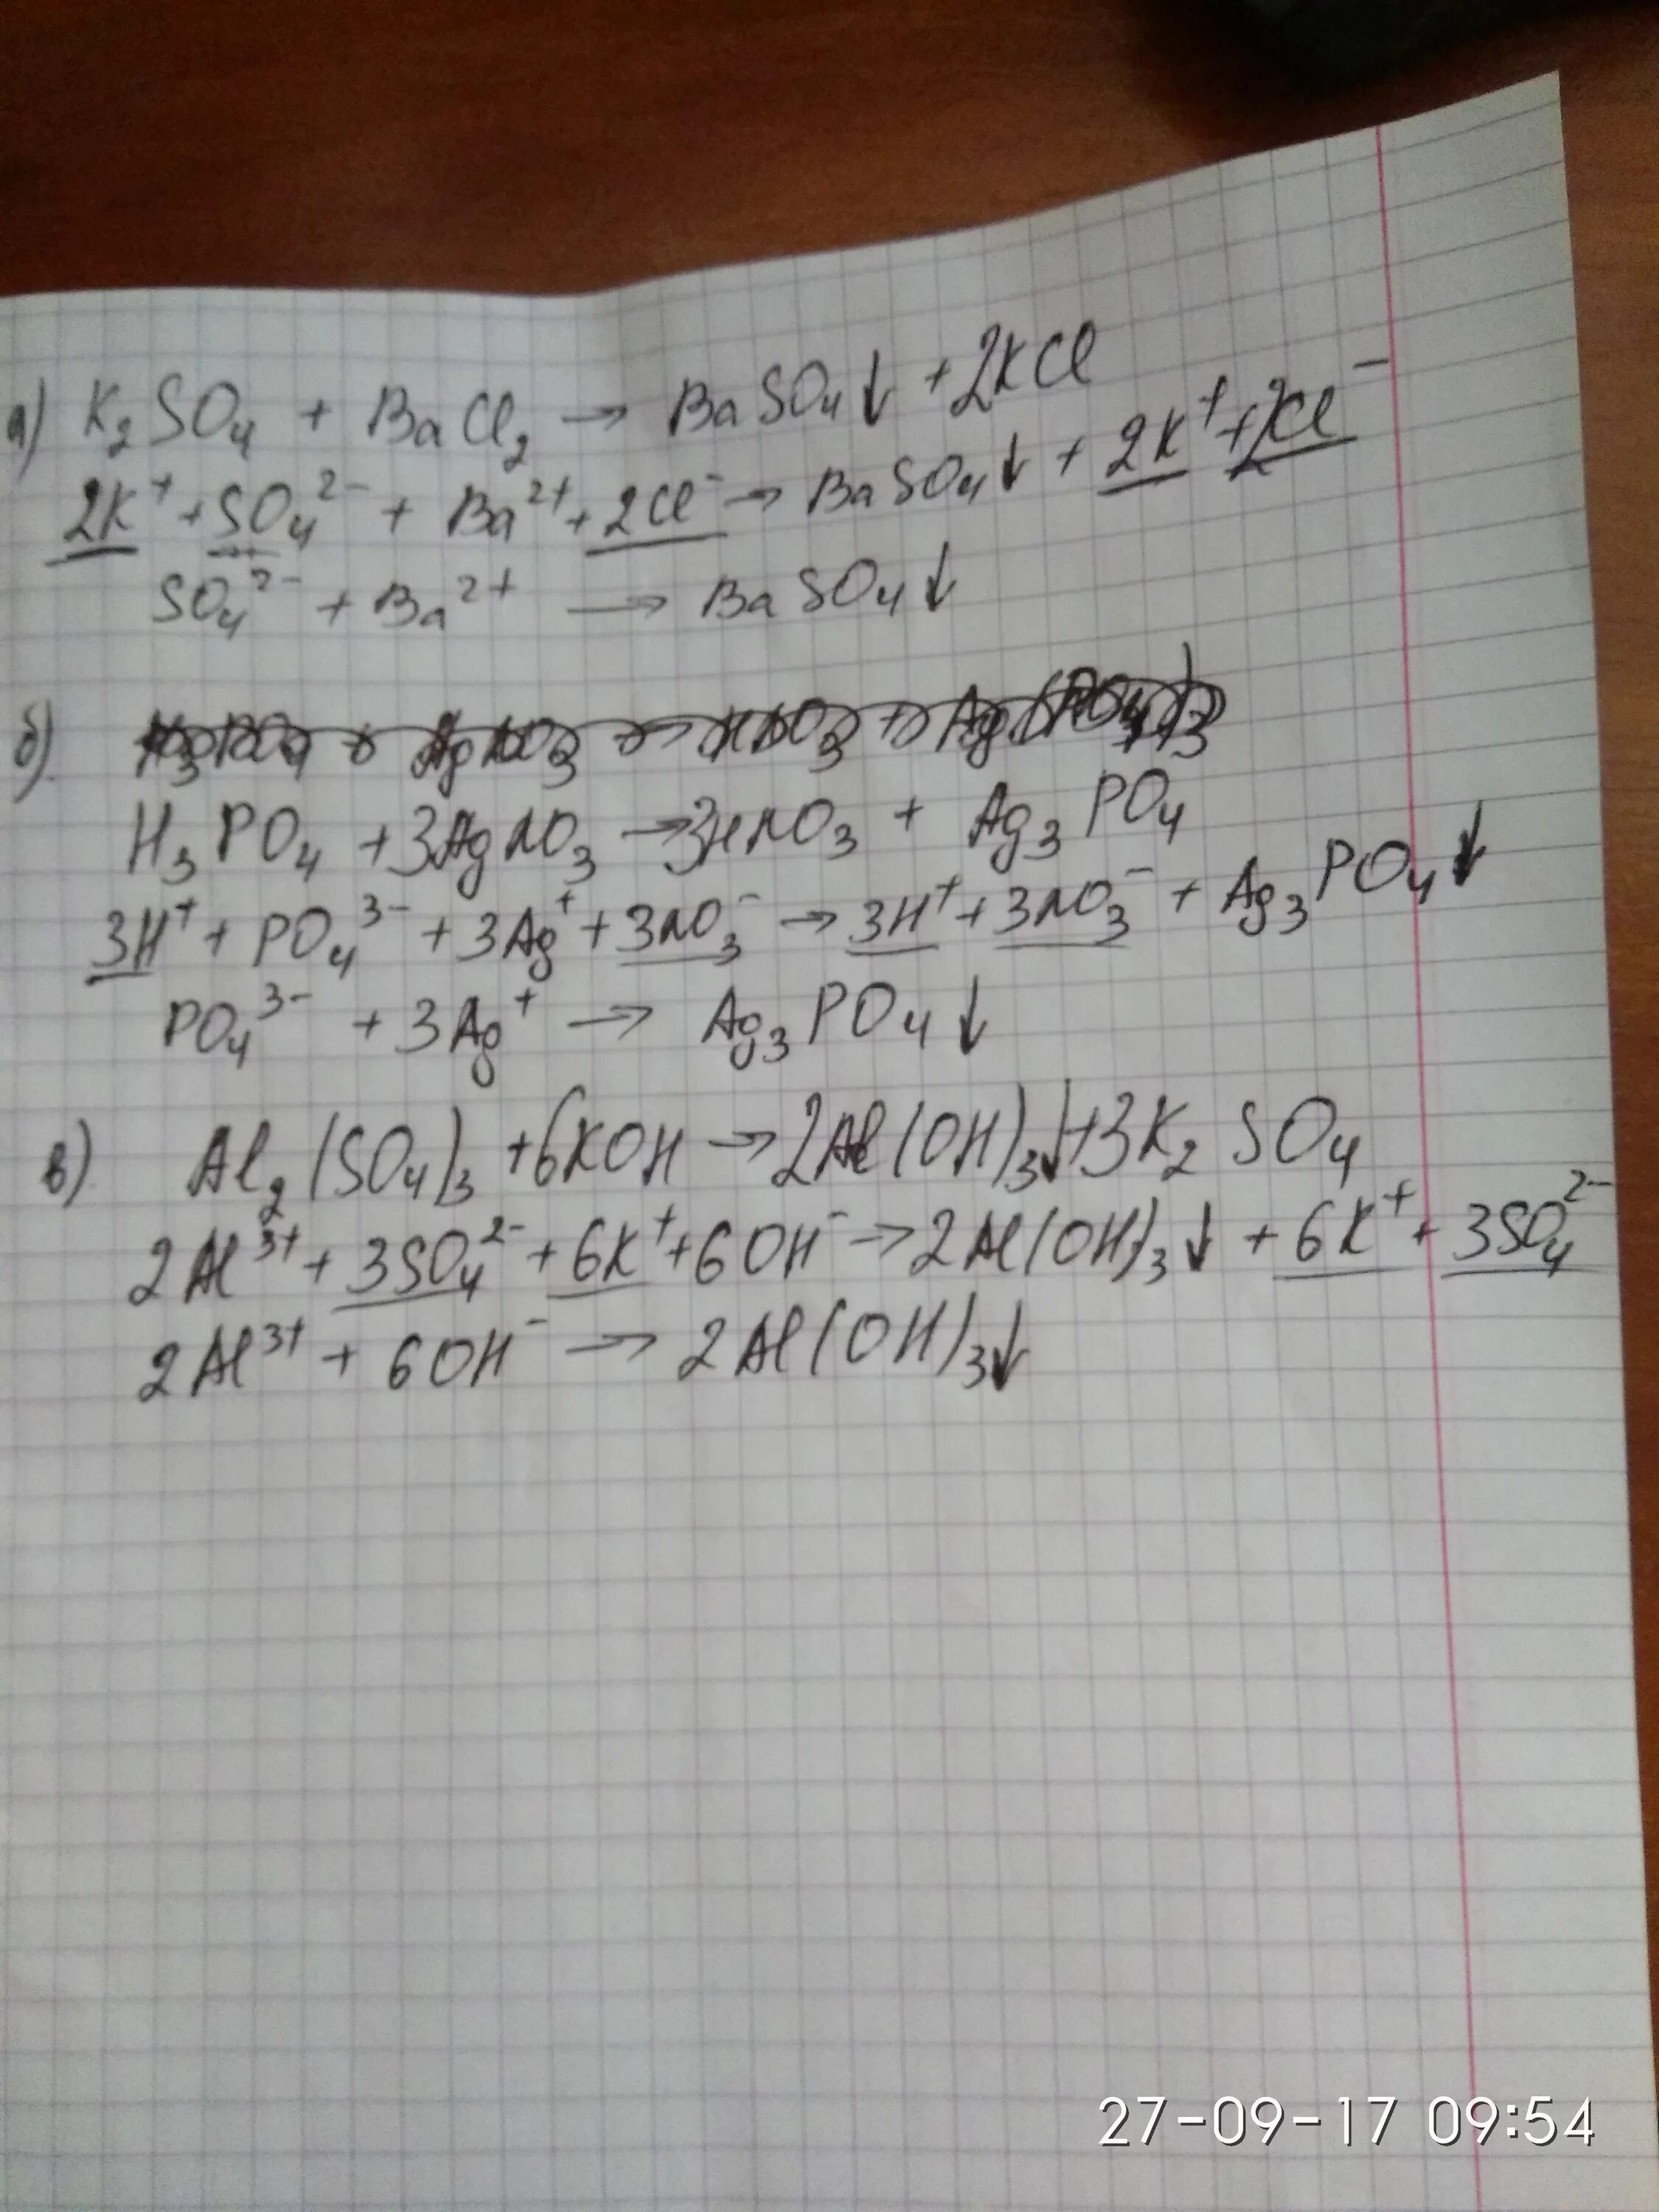 а) K₂SO₄ + BaCl₂ → BaSO₄↓ + 2KCl
2K⁺ + SO₄²⁻ + Ba²⁺ + 2Cl⁻ → BaSO₄↓ + 2K⁺ + 2Cl⁻
SO₄²⁻ + Ba²⁺ → BaSO₄↓
б)
H₃PO₄ + 3AgNO₃ → 3HNO₃ + Ag₃PO₄
3H⁺ + PO₄³⁻ + 3Ag⁺ + 3NO₃⁻ → 3H⁺ + 3NO₃⁻ + Ag₃PO₄↓
PO₄³⁻ + 3Ag⁺ → Ag₃PO₄↓
в) Al₂(SO₄)₃ + 6KOH → 2Al(OH)₃↓ + 3K₂SO₄
2Al³⁺ + 3SO₄²⁻ + 6K⁺ + 6OH⁻ → 2Al(OH)₃↓ + 6K⁺ + 3SO₄²⁻
2Al³⁺ + 6OH⁻ → 2Al(OH)₃↓
27-09-17 09:54